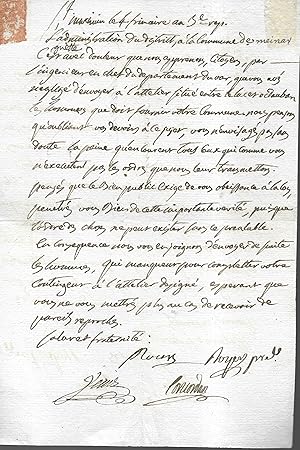 St maximin le 4 frimaire an 3e rep.
L'administration du District, à la Commune de meinar
quette
C'est avec douleur que nous apprenons, Citoyens, par
l'ingenieur en chef du departement du var, que vous avés
négligé d'envoyer à l'attelier situé entre le
les hommes que doit fournir votre Commune, nous pensons
qu'oubliant vos devoirs à ce sujet, vous n'envisagés pas sans
doute la peine qu'encourent tous ceux qui comme vous
n'executent pas les ordres que nous leur transmettons.
pensés que le Bien public Exige de vous obeissance à la loy,
penetrés vous Bien de cette importante verité, puisque
l'ordre des choses ne peut exister sans ce prealable.
En Consequence nous vous enjoignons d'envoyer de suite
les hommes, qui manquent pour completter votre
Contingent à l'attelier designé, esperant que
vous ne vous mettrés plus au cas de recevoir de
pareils reproches.
Salut et fraternité :